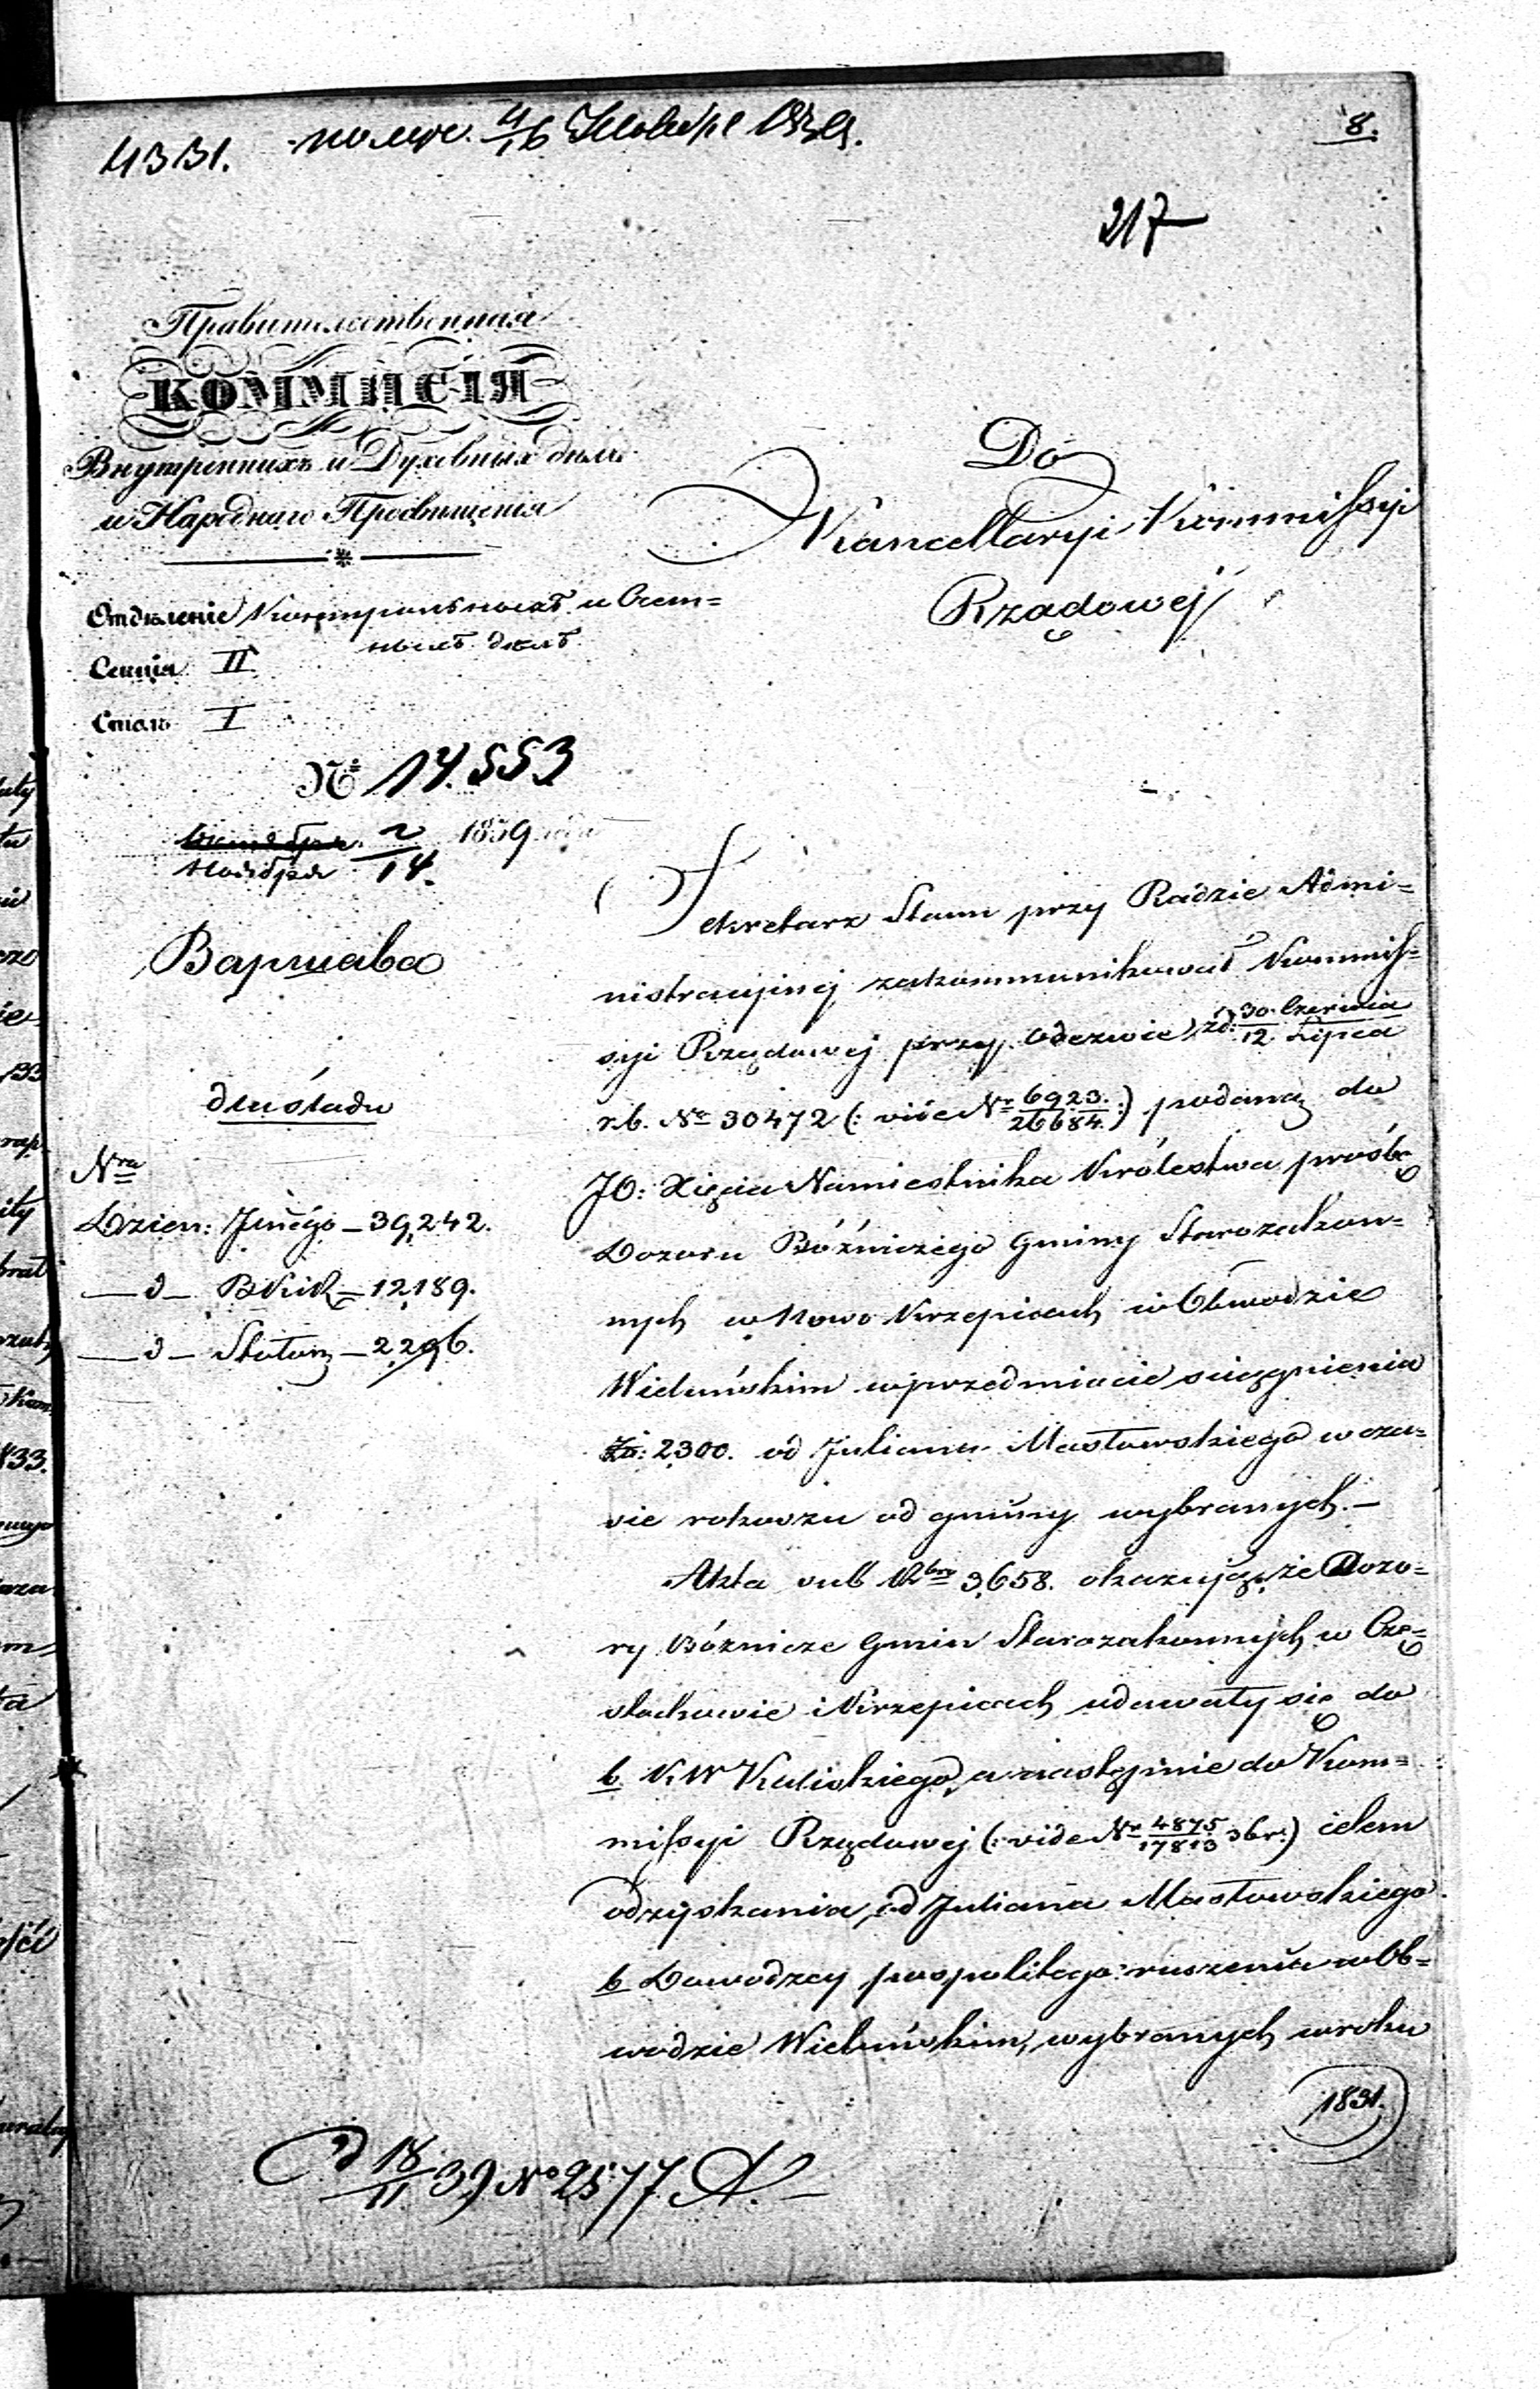 4331. 4/16 1839.
8.
217
Правительственная
КОММИСІЯ
Внутреннихъ и Духовныхъ дѣлъ
и Народнаго Просвѣщенія
Отдѣленіе Контрольныхъ и Счет=
ныхъ дѣлъ
Секція II
Столъ I
№ 14.553
Ноября 2/14. 1839 года
Варшава
dla śladu
Nra
Dzien: Jnnego – 39,242.
– d – – 12,189.
– d – – 2296.
Do
Kancellaryi Kommissyi
Rządowej
Sekretarz Stanu przy Radzie Admi=
nistracyjnej zakommunikował Kommis=
syi Rządowej przy Odezwie z d: 30. Czerwca/12 Lipca
r.b. Nr 30472 (: vide Nr 6923./26684. :) podaną do
JO: Xięcia Namiestnika Królestwa prośbę
Dozoru Bóżniczego Gminy Starozakon=
nych w Nowo Krzepicach w Obwodzie
Wieluńskim w przedmiocie sciągnienia
Zł: 2300. od Juliana Masłowskiego w cza=
sie rokoszu od gminy wybranych. –
Akta sub 3,658. okazują, że Dozo=
ry Bóżnicze Gmin Starozakonnych w Czę=
stochowie i Krzepicach udawały się do
b. K W Kaliskiego, a następnie do Kom=
missyi Rządowej (: vide Nr 4875/17813 :) celem
odzyskania, od Juliana Masłowskiego
b Dowodzcy pospolitego ruszenia w Ob=
wodzie Wieluńskim, wybranych w roku
1831.
d 18/11 39 No 2577